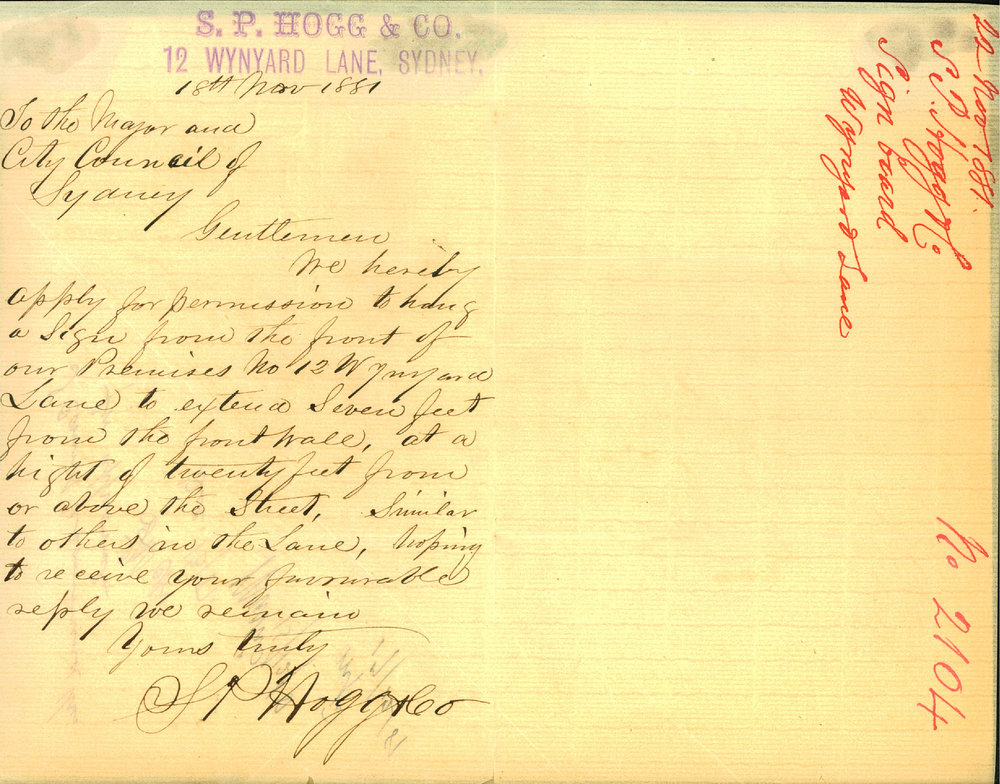 S. P. HOGG & CO.
12 WYNYARD LANE, SYDNEY,
18th Nov 1881
To the Mayor and
City Council of
Sydney
Gentlemen
We hereby
apply for permission to hang
a Sign from the front of
our Premises No 12 Wynyard
Lane to extend Seven feet
from the front wall, at a
hight of twenty feet from
or above the Street, Similar
to others in the Lane, hoping
to receive your favourable
reply we remain
Yours truly
S P Hogg & Co
22 Nov 1881.
S. P. Hogg & Co
Sign board
Wynyard Lane
No 2104